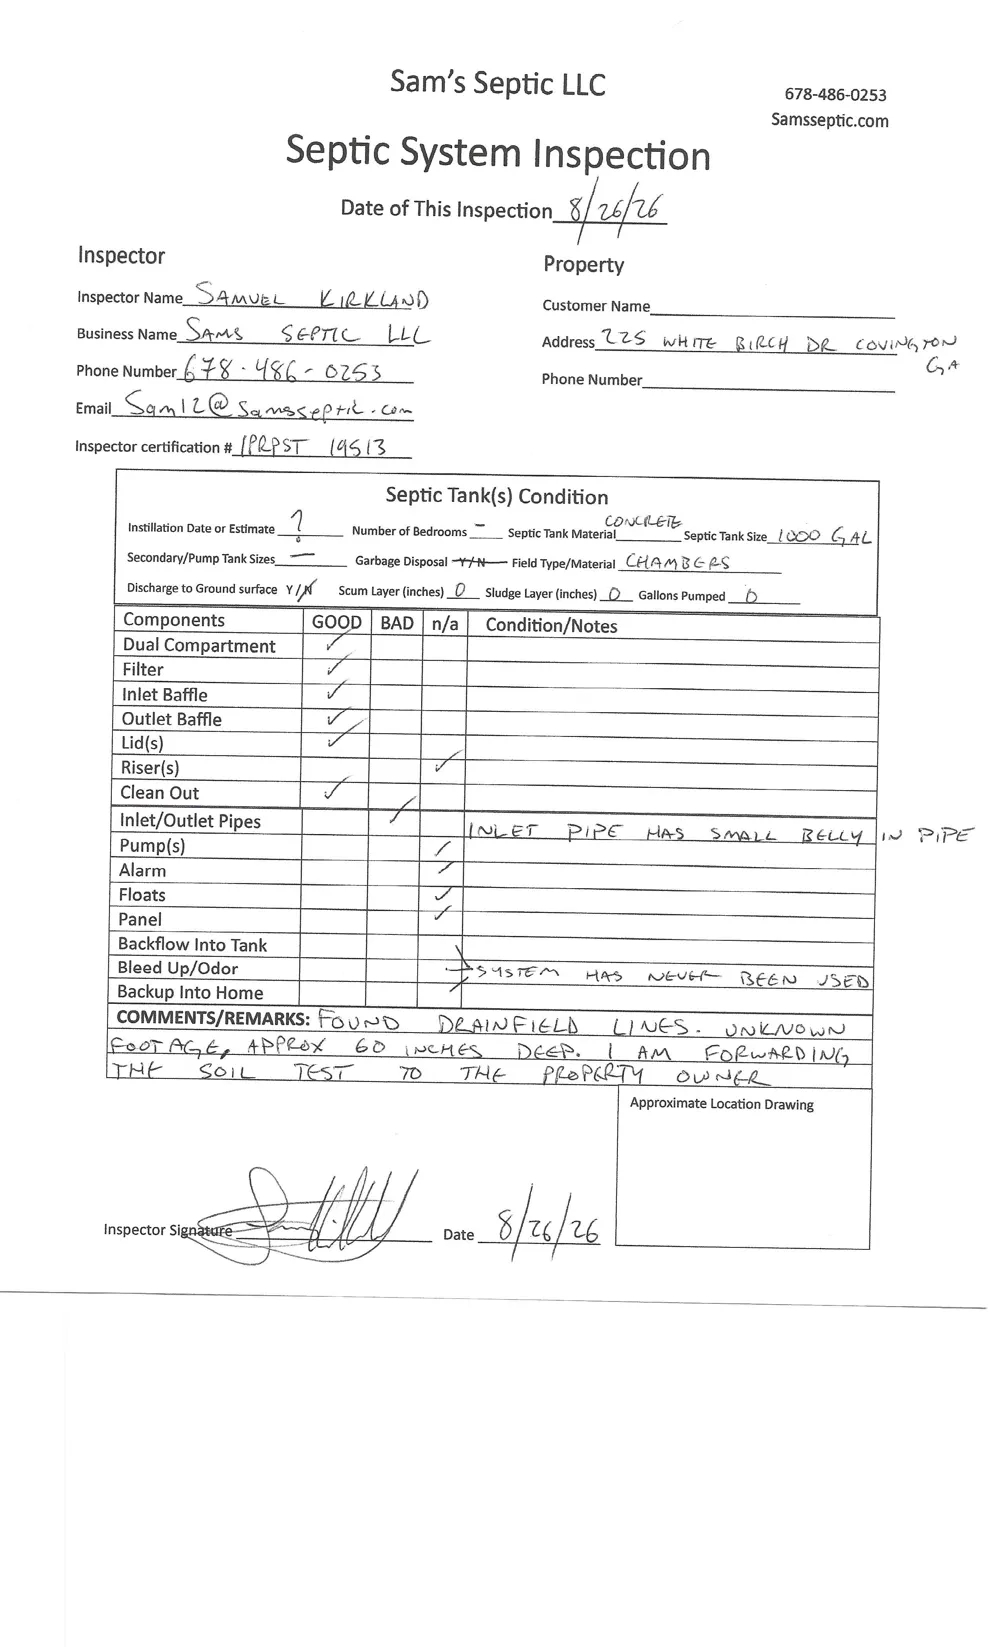 Sam's Septic LLC
678-486-0253
Samsseptic.com
Septic System Inspection
Date of This Inspection 8/26/26
Inspector
Property
Inspector Name SAMUEL KIRKLAND
Customer Name
Business Name SAMS SEPTIC LLC
Address 225 WHITE BIRCH DR COVINGTON
GA
Phone Number 678-486-0253
Phone Number
Email Sam12@samsseptic.com
Inspector certification # IPRPST 19513
Septic Tank(s) Condition
Instillation Date or Estimate ? Number of Bedrooms - Septic Tank Material CONCRETE Septic Tank Size 1000 GAL
Secondary/Pump Tank Sizes — Garbage Disposal Y/N Field Type/Material CHAMBERS
Discharge to Ground surface Y/N Scum Layer (inches) 0 Sludge Layer (inches) 0 Gallons Pumped 0
Components GOOD BAD n/a Condition/Notes
Dual Compartment ✓
Filter ✓
Inlet Baffle ✓
Outlet Baffle ✓
Lid(s) ✓
Riser(s) ✓
Clean Out ✓
Inlet/Outlet Pipes ✓ INLET PIPE HAS SMALL BELLY IN PIPE
Pump(s) ✓
Alarm ✓
Floats ✓
Panel ✓
Backflow Into Tank
Bleed Up/Odor SYSTEM HAS NEVER BEEN USED
Backup Into Home
COMMENTS/REMARKS: FOUND DRAINFIELD LINES. UNKNOWN
FOOTAGE, APPROX 60 INCHES DEEP. I AM FORWARDING
THE SOIL TEST TO THE PROPERTY OWNER
Approximate Location Drawing
Inspector Signature
Date 8/26/26